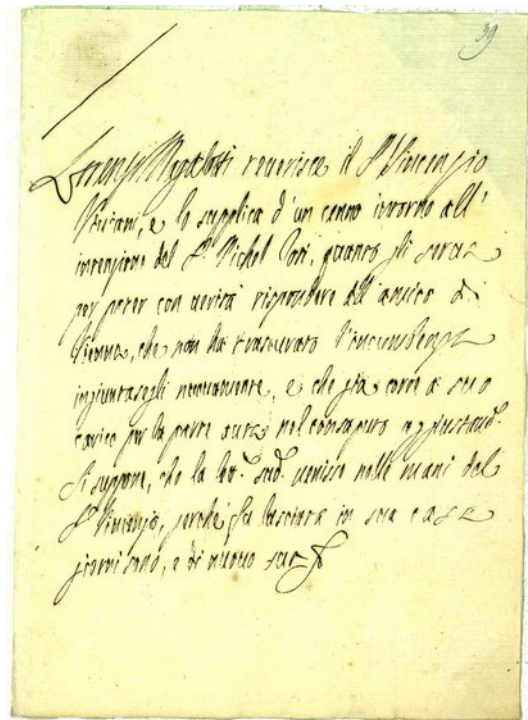 39
Lorenzo Magalotti reverisce il S.r Vincenzio
Viviani, e lo supplica d'un cenno intorno all'
intenzione del S.r Michel gli
per poter con verità rispondere all'amico di
Vienna, che non ha trascurato l'incumbenza
ingiuntagli nuovamente, e che già corre a suo
carico per la parte nel consaputo aggiustam.
Si suppone, che la lett. sud. venisse nelle mani del
S.r Vincenzio, perchè fu lasciata in sua casa
giorni sono, e di nuovo